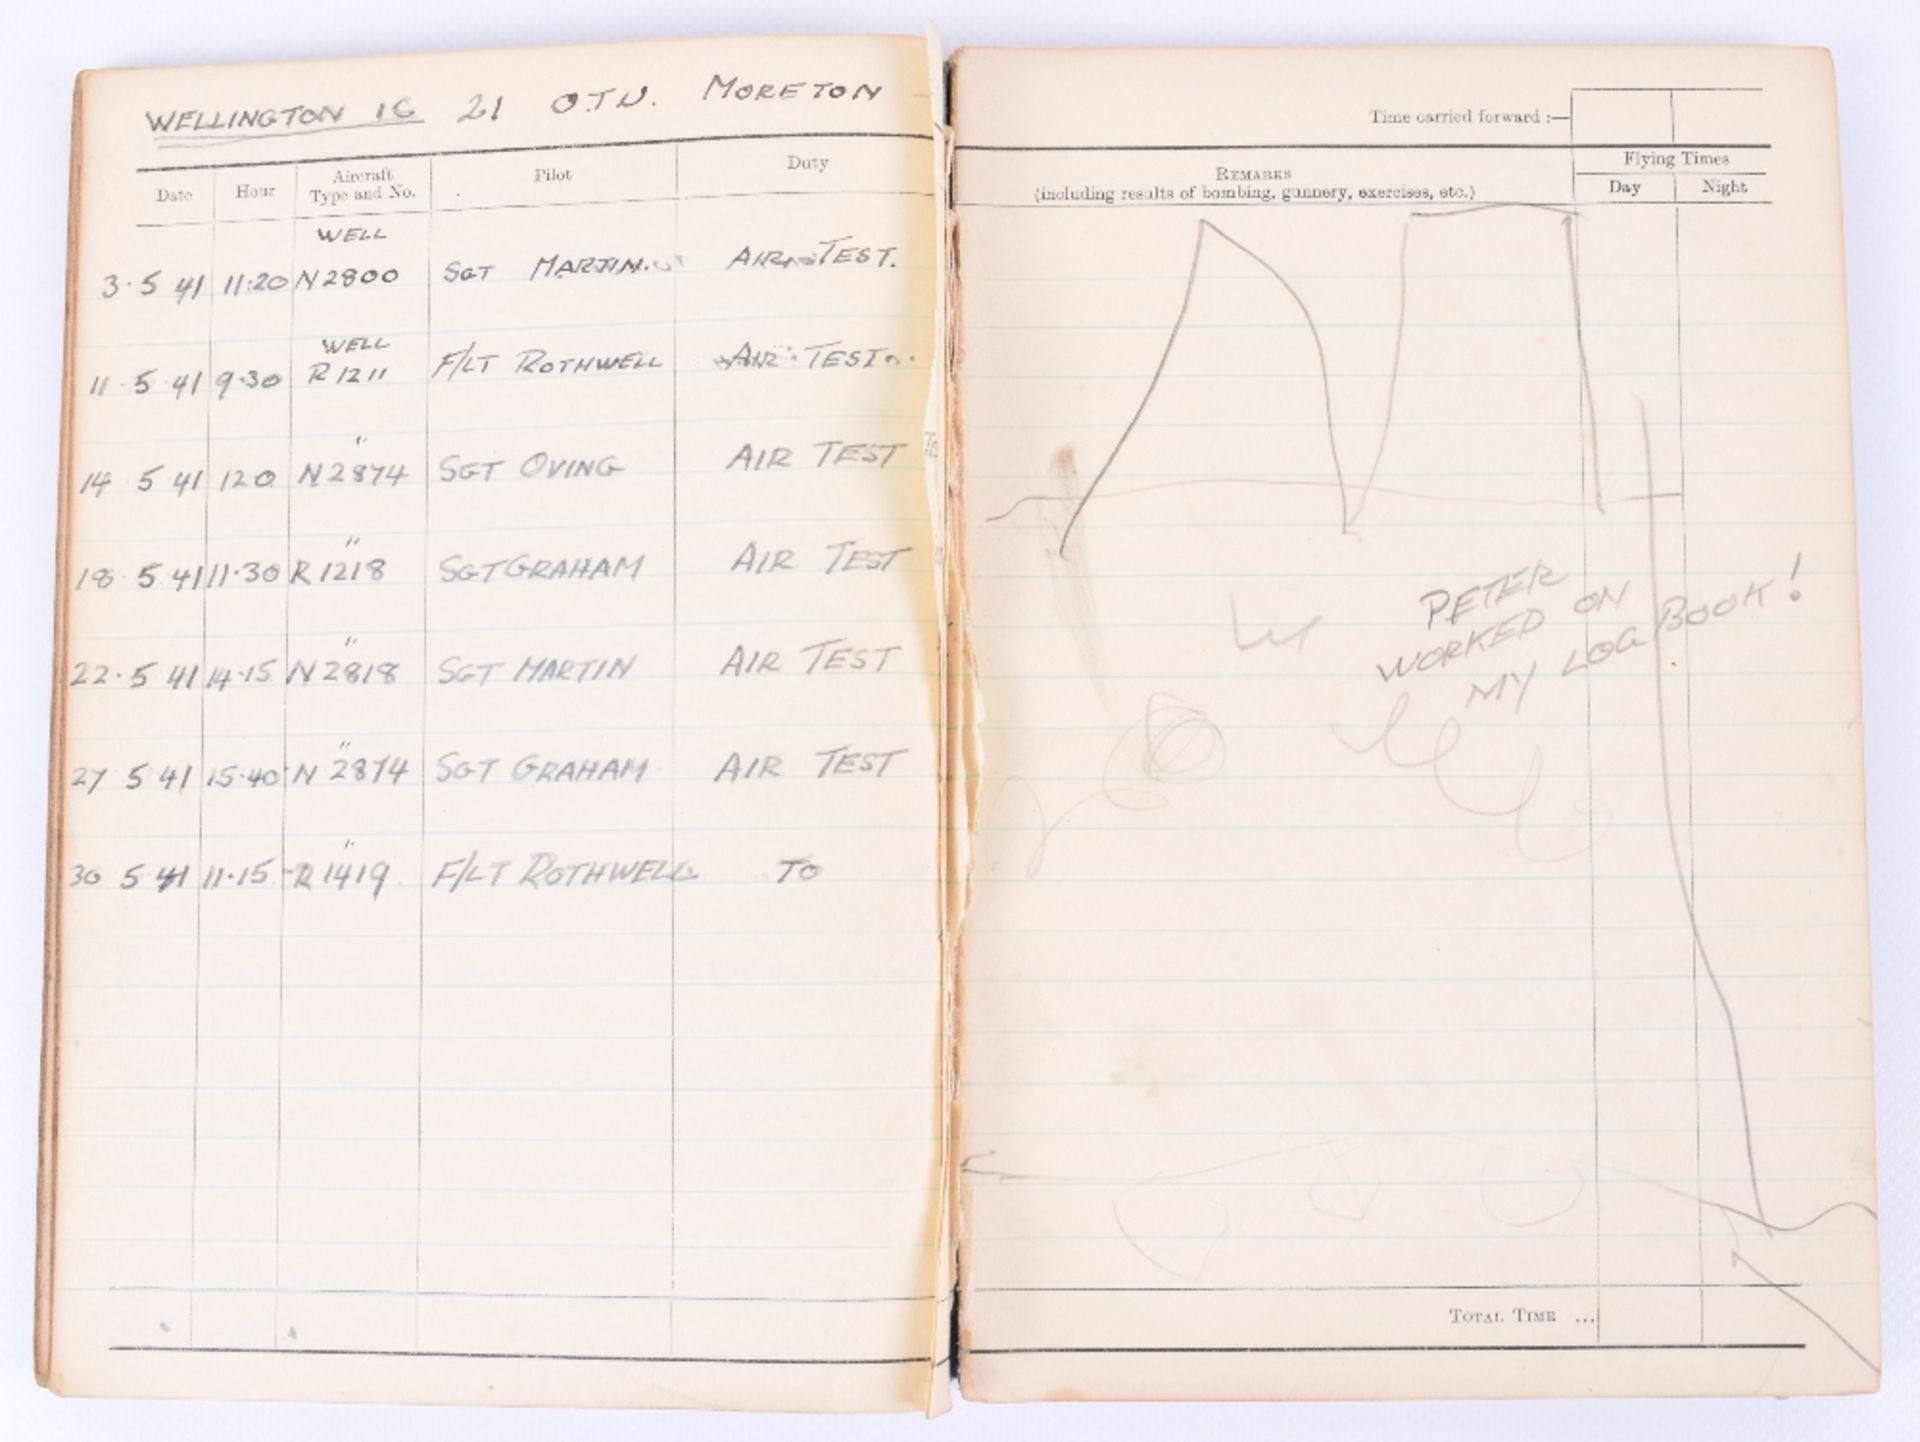 WELLINGTON 1C 21 O.T.U. MORETON -
Date Hour Aircraft Type and No. Pilot Duty
WELL
3·5 41 11·20 N2800 SGT MARTIN. AIR TEST.
WELL
11·5·41 9·30 R1211 F/LT ROTHWELL AIR TEST
"
14 5 41 120 N2874 SGT OVING AIR TEST
"
18 5 41 11·30 R1218 SGT GRAHAM AIR TEST
"
22·5 41 14·15 N2818 SGT MARTIN AIR TEST
"
27 5 41 15·40 N2874 SGT GRAHAM AIR TEST
"
30 5 41 11·15 R1419 F/LT ROTHWELL TO
Time carried forward :—
REMARKS
(including results of bombing, gunnery, exercises, etc.)
Flying Times
Day Night
PETER
WORKED ON
MY LOG BOOK!
TOTAL TIME ...